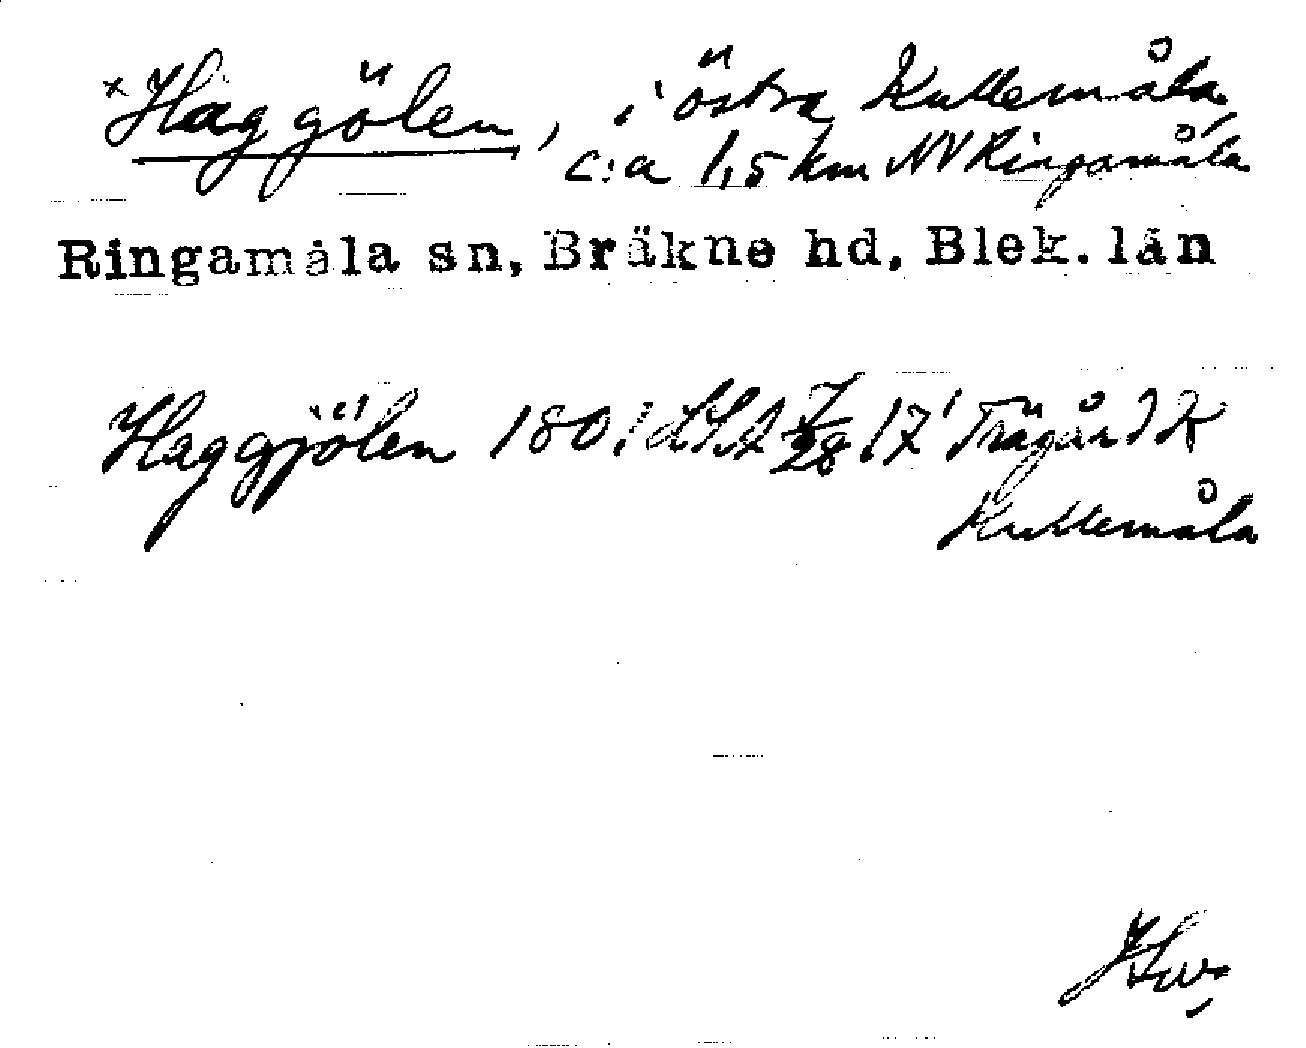 ×Haggölen, i östra Kullemåla,
c:a 1,5 km NV Ringamåla
Ringamåla sn, Bräkne hd, Blek. län
Haggjölen 1801 LSA 17
Kullemåla